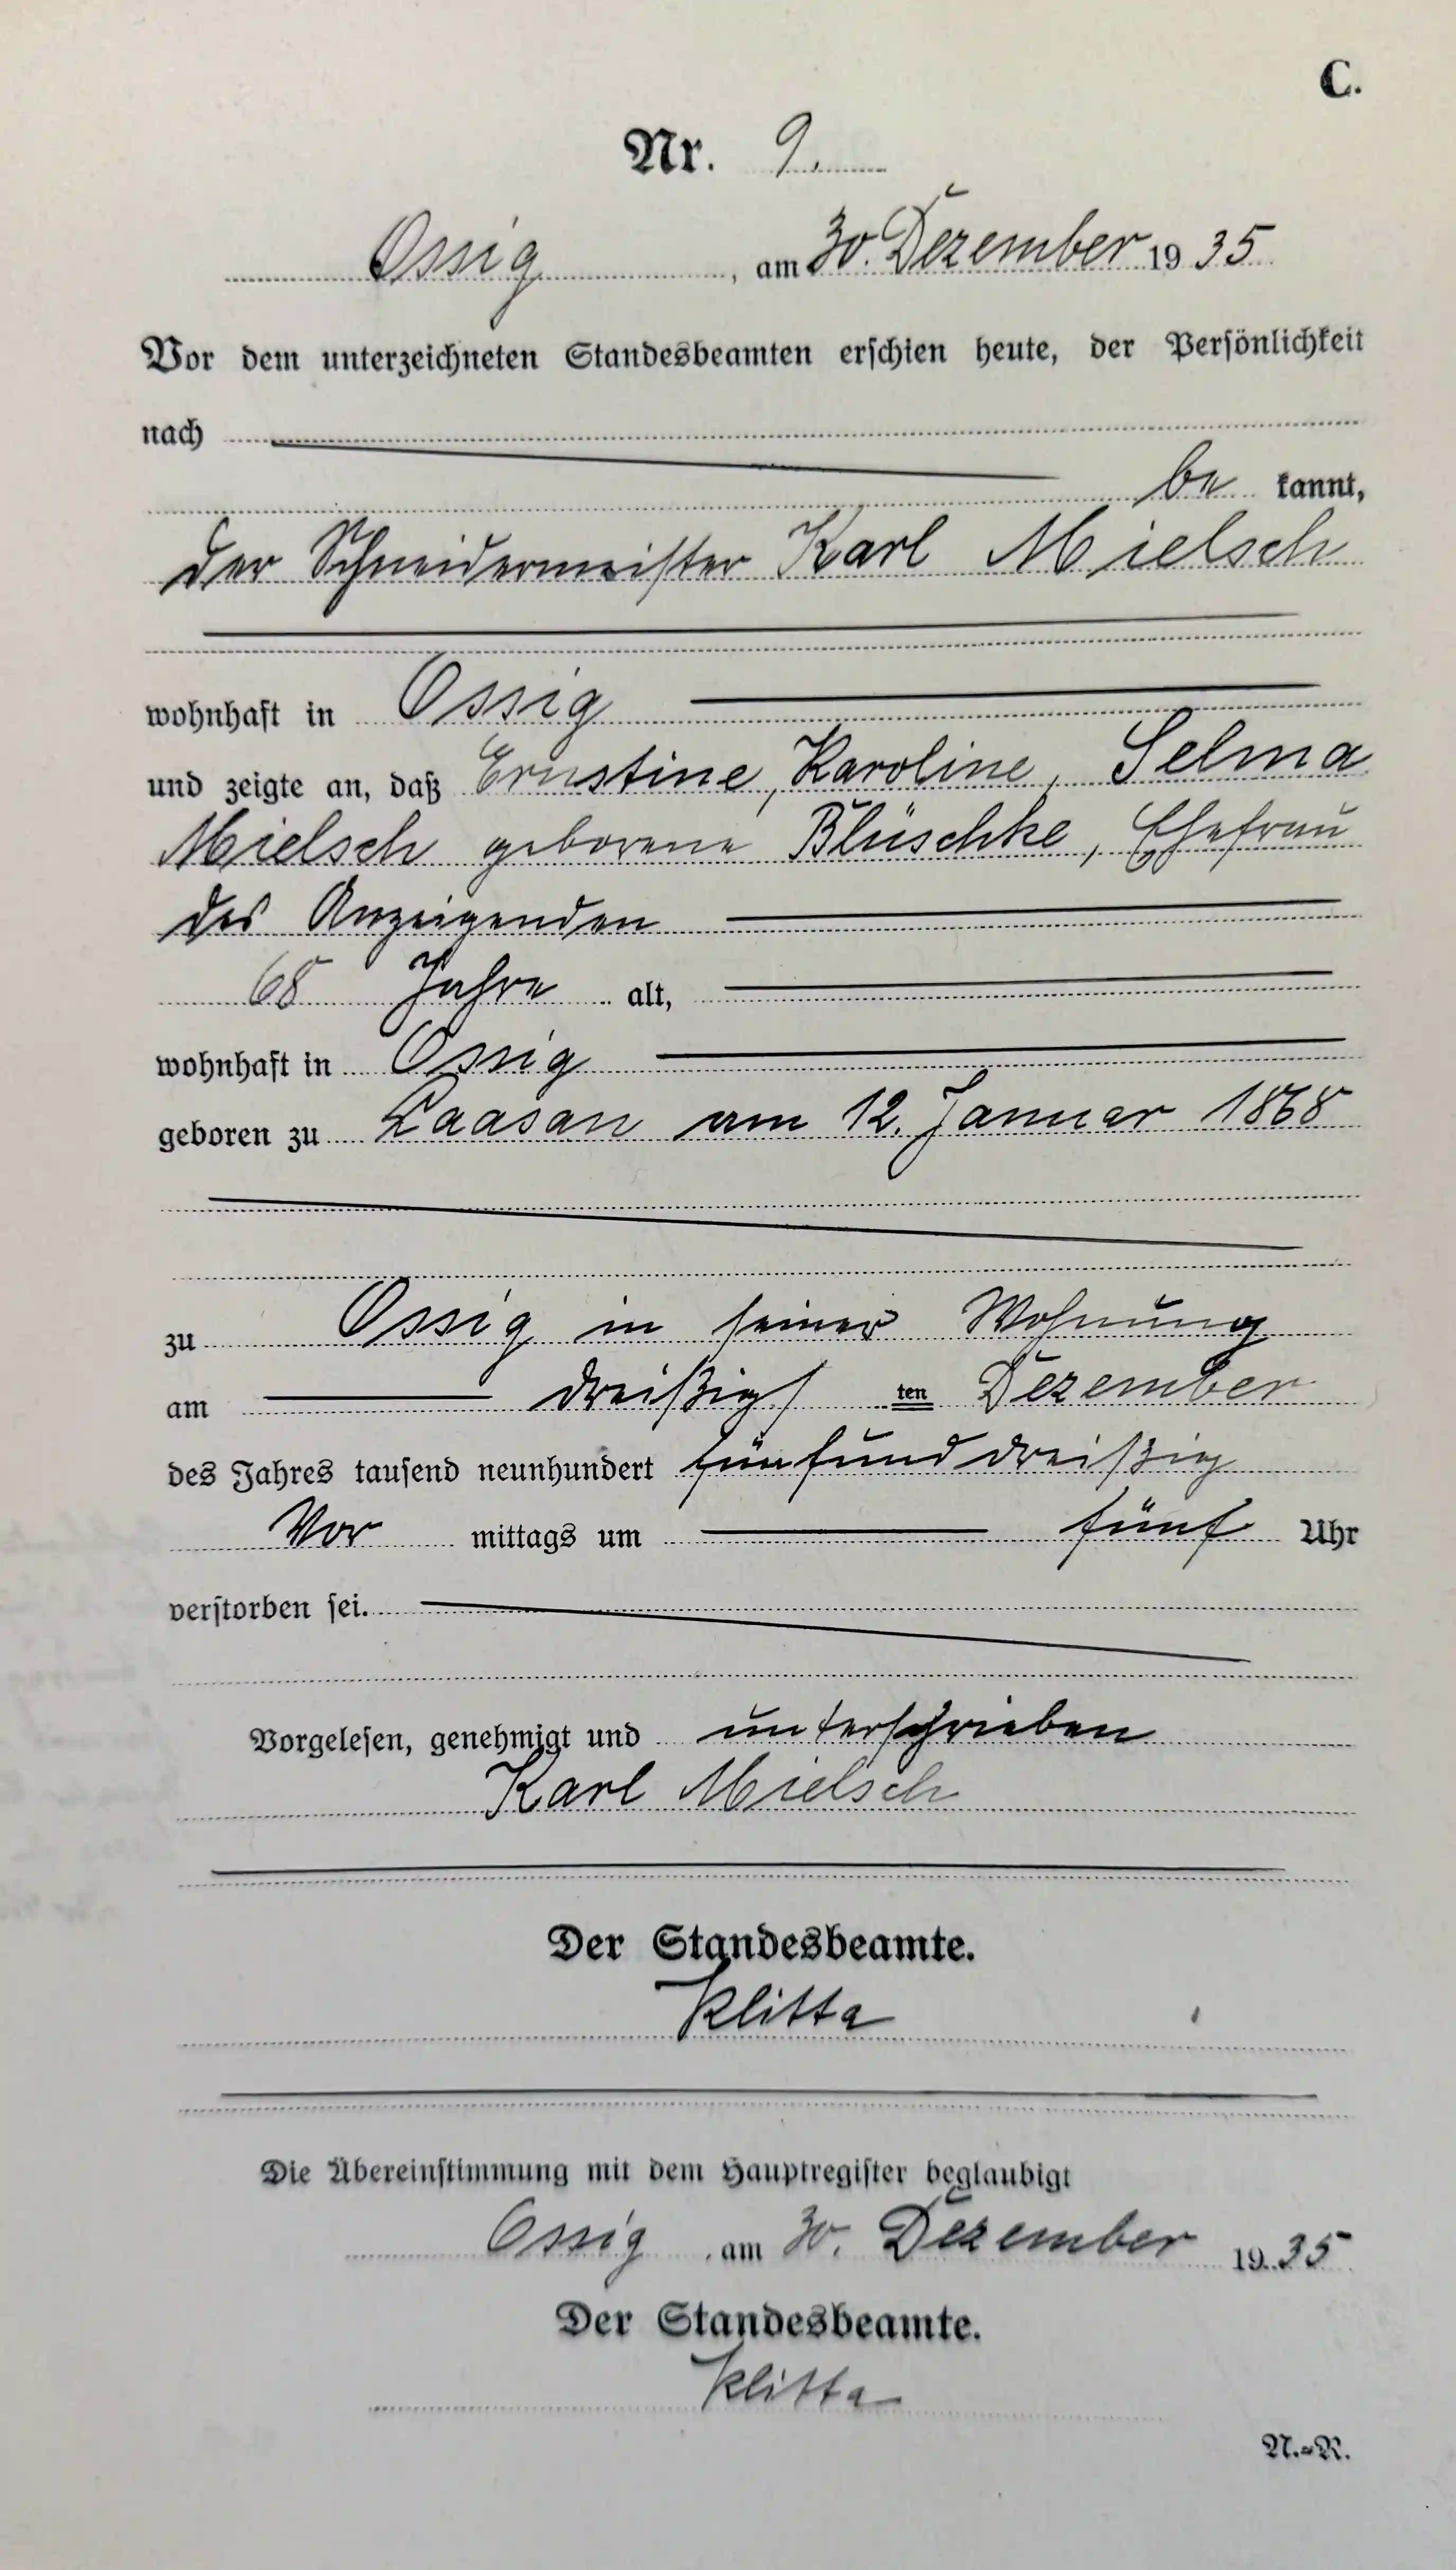 C.
Nr. 9.
Ossig, am 30. Dezember 1935
Vor dem unterzeichneten Standesbeamten erschien heute, der Persönlichkeit
nach
be kannt,
der Schneidermeister Karl Mielsch
wohnhaft in Ossig
und zeigte an, daß Ernstine, Karoline, Selma
Mielsch geborene Blüschke, Ehefrau
des Anzeigenden
68 Jahre alt,
wohnhaft in Ossig
geboren zu Laasan am 12. Januar 1868
zu Ossig in seiner Wohnung
am dreißigsten Dezember
des Jahres tausend neunhundert fünfunddreißig
Vor mittags um fünf Uhr
verstorben sei.
Vorgelesen, genehmigt und unterschrieben
Karl Mielsch
Der Standesbeamte.
Klitta
Die Übereinstimmung mit dem Hauptregister beglaubigt
Ossig, am 30. Dezember 1935
Der Standesbeamte.
Klitta
N.-R.